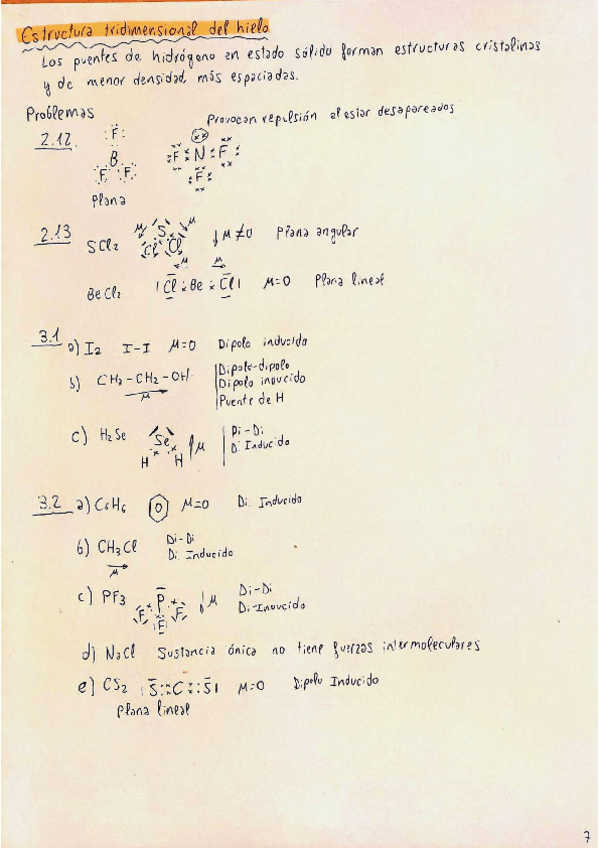 Estructura tridimensional del hielo
Los puentes de hidrógeno en estado sólido forman estructuras cristalinas
y de menor densidad, más espaciadas.
Problemas
Provocan repulsión al estar desapareados
2.12
F
B
F F
Plana
F N F
F
2.13
SCl2
S
Cl Cl
μ μ
μ≠0 Plana angular
BeCl2
μ μ
Cl Be Cl μ=0 Plana lineal
3.1
a) I2 I-I μ=0 Dipolo inducido
b) CH3-CH2-OH
μ
Dipolo-dipolo
Dipolo inducido
Puente de H
c) H2Se
Se
H H
μ
Di-Di
Di Inducido
3.2 a) C6H6 μ=0 Di. Inducido
b) CH3Cl
μ
Di-Di
Di. Inducido
c) PF3
P
F F
F
μ
Di-Di
Di-Inducido
d) NaCl Sustancia iónica no tiene fuerzas intermoleculares
e) CS2 S::C::S μ=0 Dipolo Inducido
Plana lineal
7